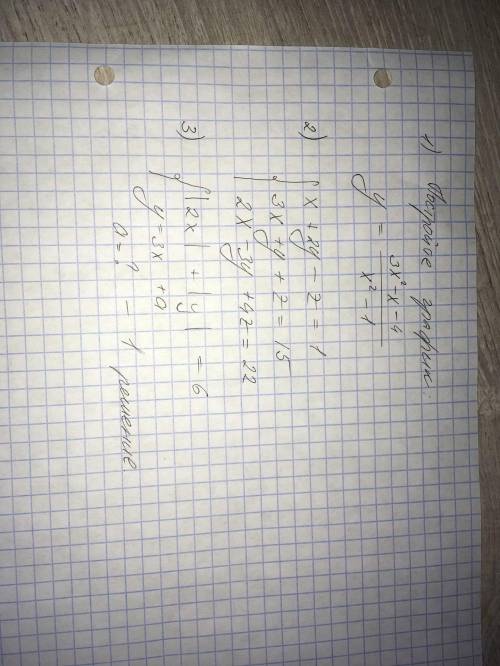 1) Постройте график:
y = \frac{3x²-x-4}{x²-1}
2) { x + 2y - z = 1
3x + y + z = 15
2x - 3y + 4z = 22
3) { |2x| + |y| = 6
y = 3x + a
a = ? - 1 решение